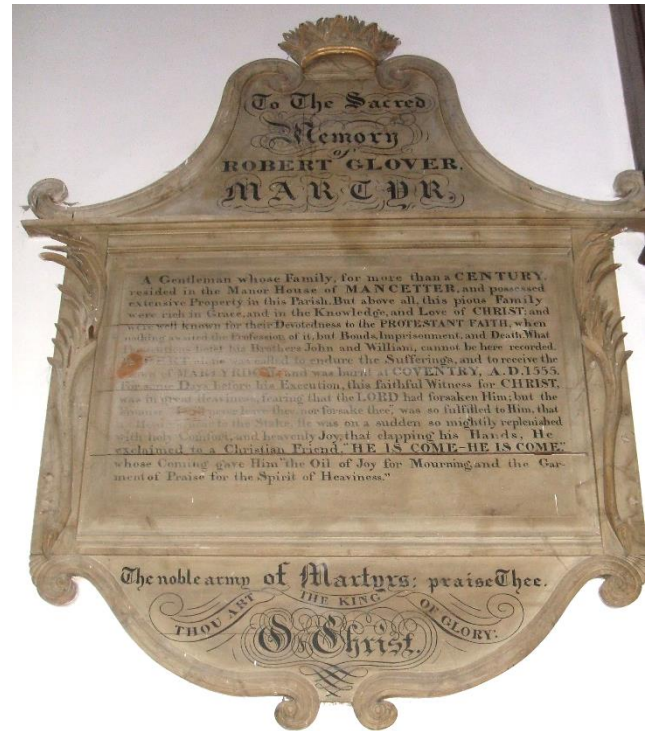 To The Sacred
Memory
of
ROBERT GLOVER,
MARTYR,
A Gentleman whose Family, for more than a CENTURY,
resided in the Manor House of MANCETTER, and possessed
extensive Property in this Parish. But above all, this pious Family
were rich in Grace, and in the Knowledge, and Love of CHRIST; and
were well known for their Devotedness to the PROTESTANT FAITH, when
nothing awaited the Profession of it, but Bonds, Imprisonment, and Death. What
his Brothers John and William, cannot be here recorded.
to endure the Sufferings, and to receive the
of MARTYRDOM, and was burnt at COVENTRY, A.D. 1555.
For some Days before his Execution, this faithful Witness for CHRIST,
was in great Heaviness, fearing that the LORD had forsaken Him; but the
leave thee, nor forsake thee, was so fulfilled to Him, that
the Stake, He was on a sudden so mightily replenished
with holy Comfort, and heavenly Joy, that clapping his Hands, He
exclaimed to a Christian Friend, "HE IS COME–HE IS COME,"
whose Coming gave Him "the Oil of Joy for Mourning, and the Gar-
ment of Praise for the Spirit of Heaviness."
The noble army of Martyrs; praise Thee.
THOU ART THE KING OF GLORY:
O Christ.